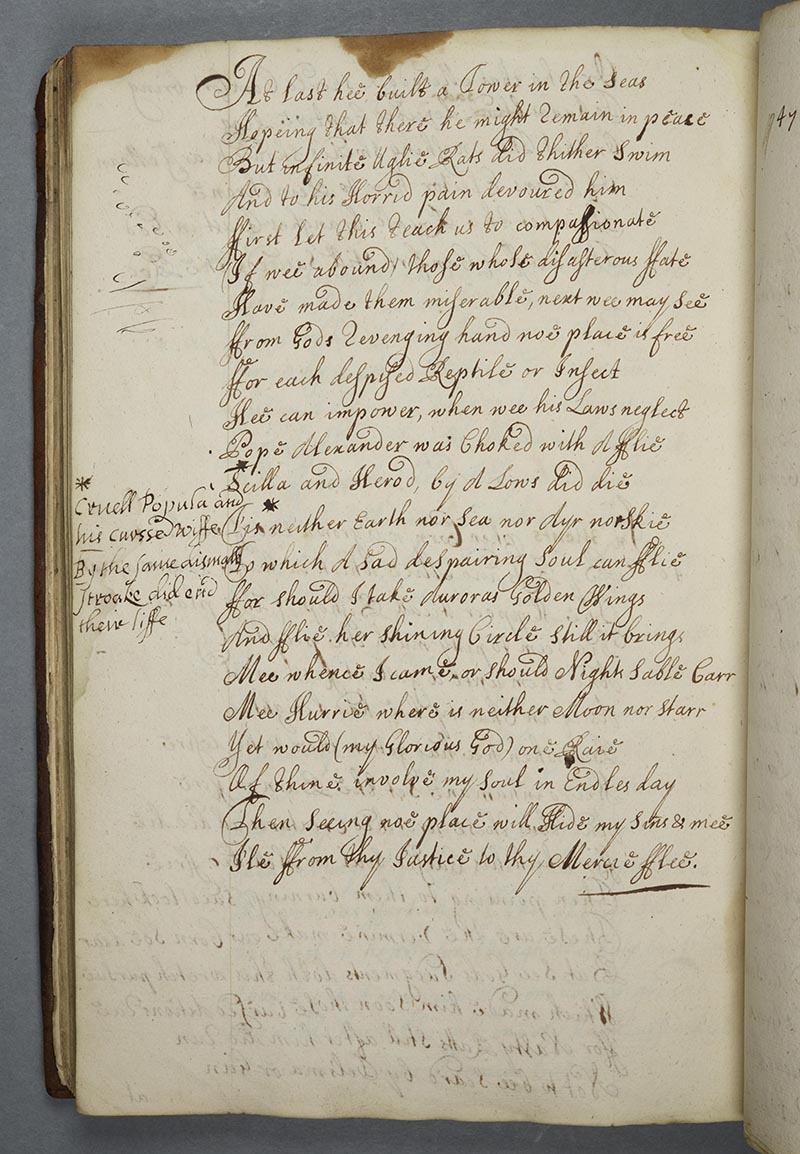 At last hee built a Tower in the Seas
Hopeing that there he might Remain in peace
But infinite Uglie Rats did thither Swim
And to his Horrid pain devoured him
ffirst let this teach us to compassionate
(If wee abound) those whose disasterous ffate
Have made them miserable, next wee may See
ffrom Gods Revenging hand noe place is free
ffor each despised Reptile or Insect
Hee can impower, when wee his Laws neglect
Pope Alexander was Choked with A fflie
Scilla and Herod, by A Lows did die
*
Cruell Popula and
his curssed Wiffe
By the same dismall
stroake did end
their liffe
* Tis neither Earth nor Sea nor Ayr nor Skie
To which A Sad despairing Soul can fflie
ffor should I take Auroras Golden Wings
And fflie her Shining Circle still it brings
Mee whence I came, or should Nights Sable Carr
Mee Hurrie where is neither Moon nor Starr
Yet would (my Glorious God) one Raie
Of thine involve my Soul in Endles day
Then Seeing noe place will Hide my Sins & mee
Ile ffrom thy Justice to thy Mercie fflee.
47